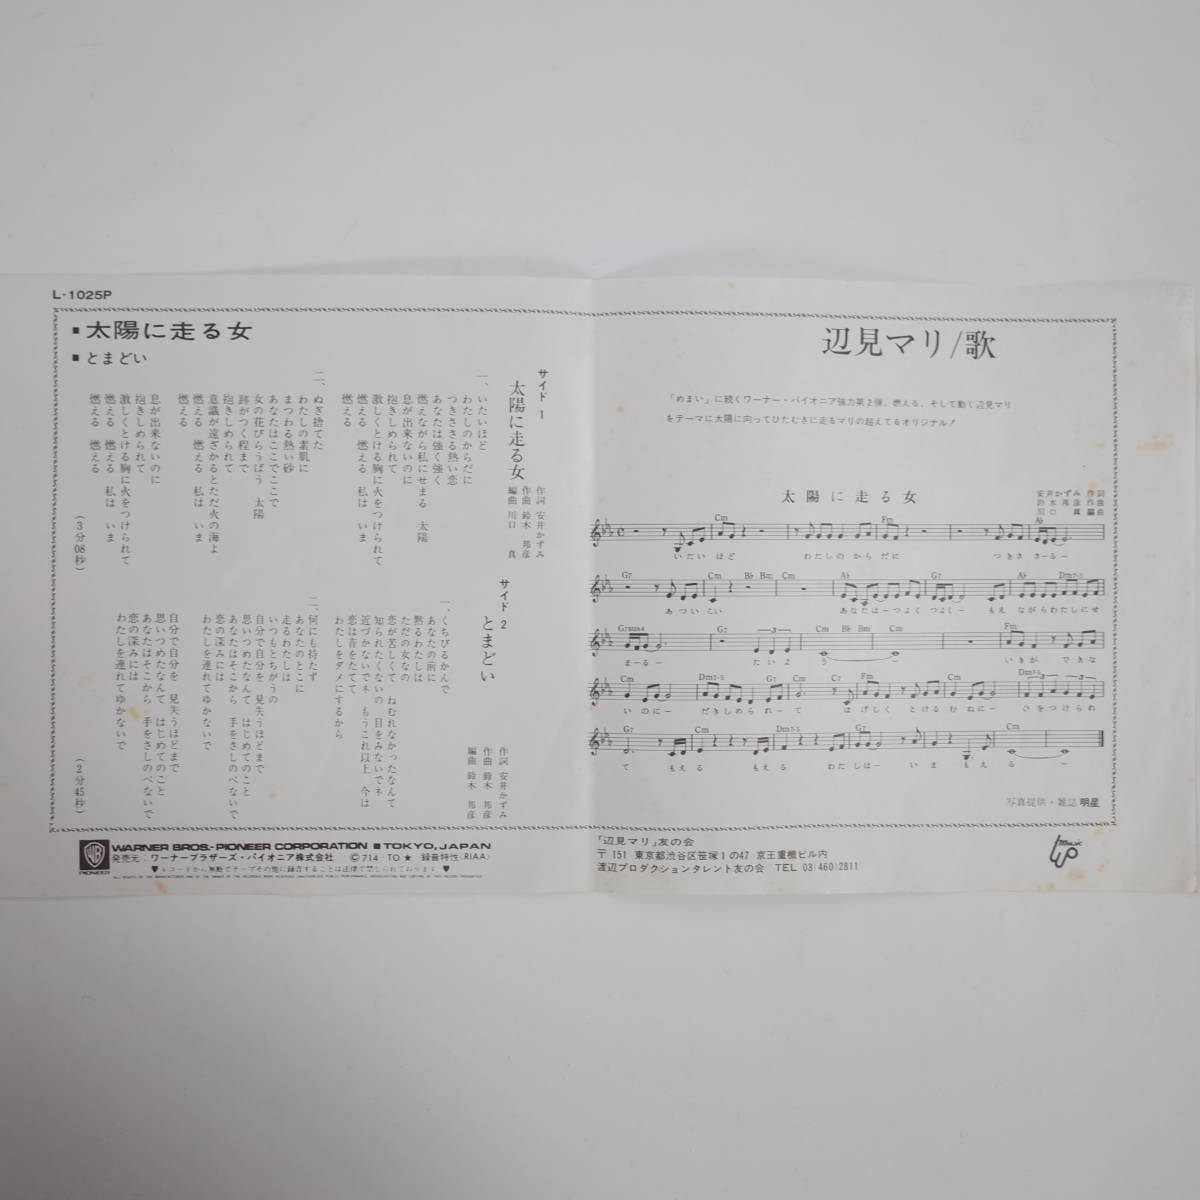 L-1025P
■ 太陽に走る女
■ とまどい
サイド 1
太陽に走る女
作詞 安井かずみ
作曲 鈴木 邦彦
編曲 川口 真
一、いたいほど
わたしのからだに
つきささる熱い恋
あなたは強く強く
燃えながら私にせまる 太陽
息が出来ないのに
抱きしめられて
激しくとける胸に火をつけられて
燃える 燃える 私は いま
燃える
二、ぬぎ捨てた
わたしの素肌に
まつわる熱い砂
あなたはここでここで
女の花びらうばう 太陽
跡がつく程まで
抱きしめられて
意識が遠ざかるとただ火の海よ
燃える 燃える 私は いま
燃える
息が出来ないのに
抱きしめられて
激しくとける胸に火をつけられて
燃える 燃える 私は いま
燃える 燃える
(3分08秒)
サイド 2
とまどい
作詞 安井かずみ
作曲 鈴木 邦彦
編曲 鈴木 邦彦
一、くちびるかんで
あなたの前に
黙るわたしは
ただの女なの
恋が苦しくて ねむれなかったなんて
知られたくないの 目をみないでネ
近づかないでネ もうこれ以上 今は
恋は音をたてて
わたしをダメにするから
二、何にも持たず
あなたのとこに
走るわたしは
いつもとちがうの
自分で自分を 見失うほどまで
思いつめたなんて はじめてのこと
あなたはそこから 手をさしのべないで
恋の深みには
わたしを連れてゆかないで
自分で自分を 見失うほどまで
思いつめたなんて はじめてのこと
あなたはそこから 手をさしのべないで
恋の深みには
わたしを連れてゆかないで
(2分45秒)
WB
PIONEER
WARNER BROS.-PIONEER CORPORATION ■ TOKYO, JAPAN
発売元：ワーナーブラザーズ・パイオニア株式会社 Ⓒ714・TO ★ 録音特性〈RIAA〉
♥レコードから無断でテープその他に録音することは法律で禁じられております♥
辺見マリ/歌
「めまい」に続くワーナー・パイオニア強力第2弾。燃える、そして動く辺見マリ
をテーマに太陽に向ってひたむきに走るマリの超えてるオリジナル!
太陽に走る女
安井かずみ 作詞
鈴木邦彦 作曲
川口 真 編曲
Cm Fm A♭
いたいほど わたしのからだに つきささーるー
G7 Cm B♭ Bm Cm A♭ G7 A♭ Dm7-5
あついこい あなたはーつよくつよくー もえながらわたしにせ
G7sus4 G7 Cm B♭ Bm Cm Fm
まーるー たいよ うー いきができな
Cm Dm7-5 G7 Cm G7 Fm Cm Dm7-5
いのにー だきしめられーて はげしくとけるむねにー ひをつけられ
G7 Cm Dm7-5 G7 Cm
て もえる もえる わたしはー いま もえるー
写真提供・雑誌 明星
「辺見マリ」友の会
〒151 東京都渋谷区笹塚1の47 京王重機ビル内
渡辺プロダクションタレント友の会 TEL 03(460)2811
music